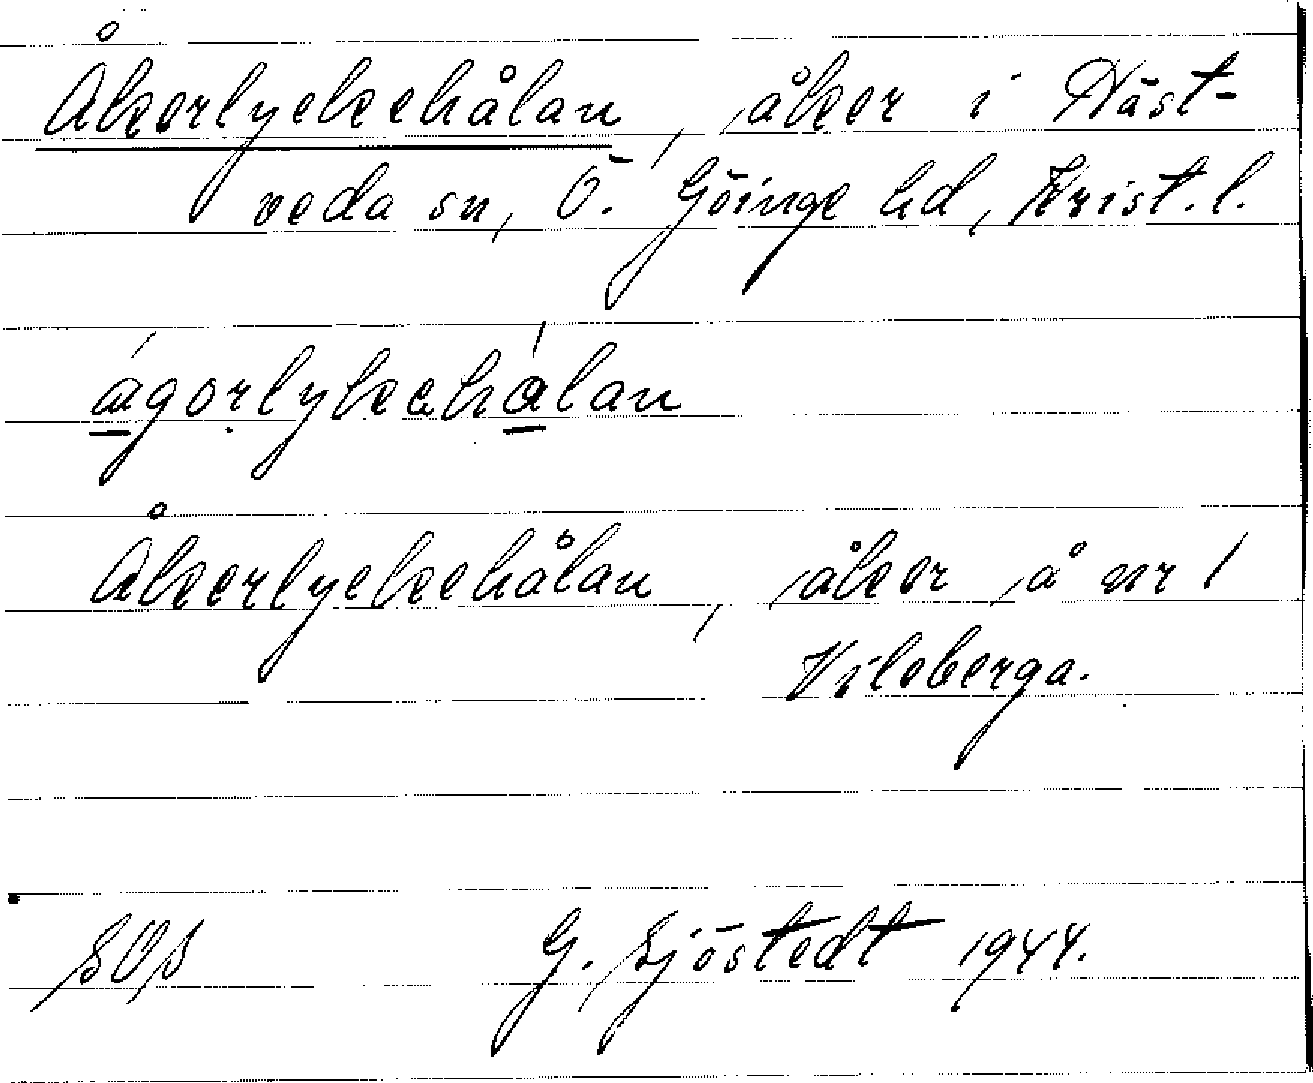 Åkerlyckehålan, åker i Näst-
veda sn, Ö. Göinge hd, Krist. l.
ágorlykehálan
Åkerlyckehålan, åker å nr 1
Vileberga.
SOS G. Sjöstedt 1944.